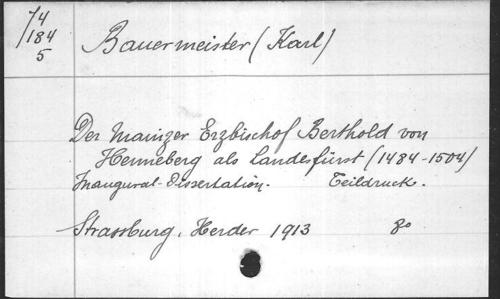 74
184
5
Bauermeister (Karl)
Der Mainzer Erzbischof Berthold von
Henneberg als Landesfürst (1484-1504)
Inaugural-Dissertation. Teildruck.
Strassburg, Herder 1913 8o